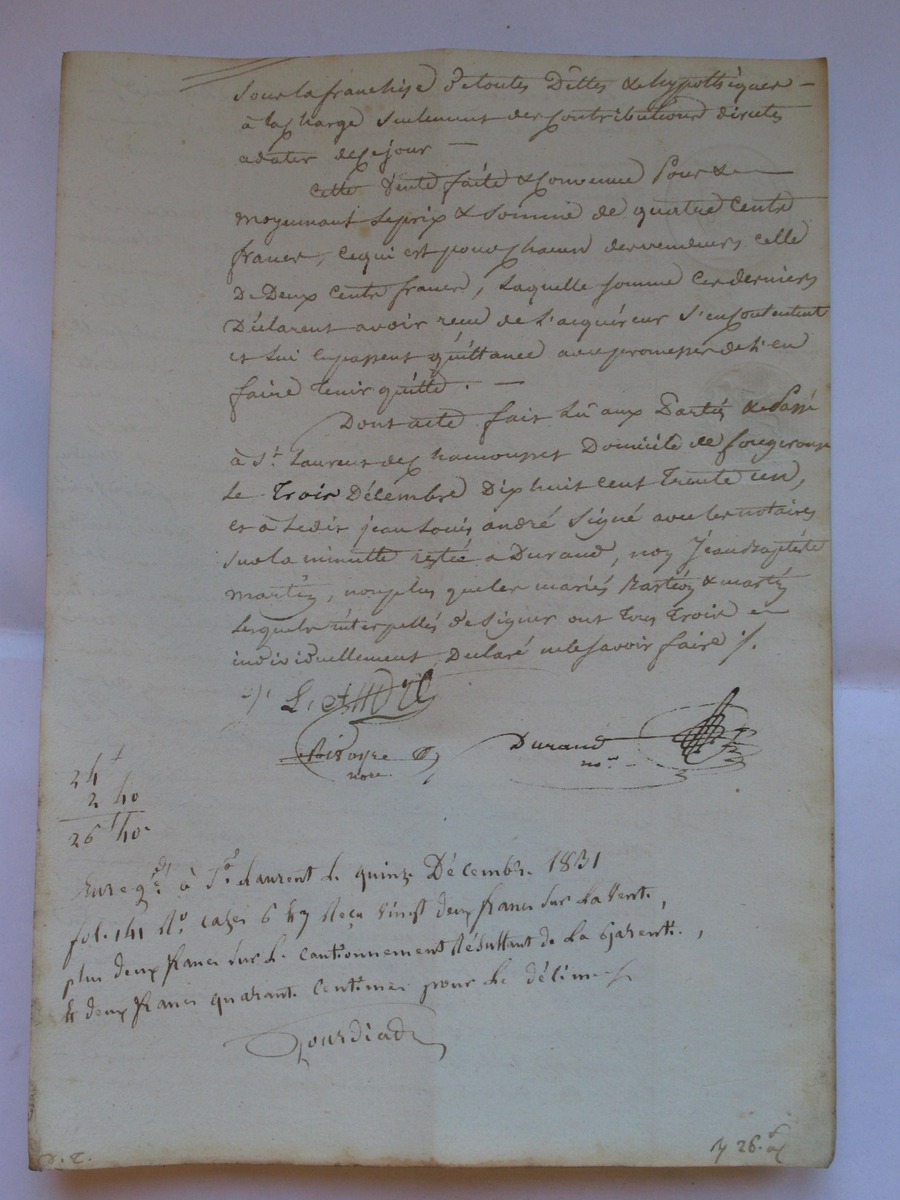 Sous la franchise de toutes Dettes & hypothèques —
à la charge seulement des contributions directes
a dater de ce jour —
Cette Vente faite & convenue Pour &
moyennant le prix & somme de quatre Cents
francs, ce qui est pour chacun des vendeurs celle
De Deux Cents francs, laquelle somme ces derniers
Déclarent avoir reçu de l'acquéreur s'en contentent
et lui en passent quittance avec promesses de l'en
faire tenir quitte. —
Dont acte fait lû aux Parties & Passé
à St. Laurent de chamousset Domicile de
Le Trois Décembre Dix huit Cent Trente un,
et a ledit jean Louis andré Signé avec les notaires
sur la minutte restée a Durand, non Jean Baptiste
martin, non plus que les mariés & martin
lesquels interpellés de signer ont Tous Trois
individuellement Déclaré ne le savoir faire ./.
L. André
nore.
Durand
nore
24 f
2 40
26 f 40 c
Enregé. à St. Laurent le quinze Décembre 1831
fol. 141 Ro. cases 6 & 7 Reçu vingt deux francs sur la vente,
plus deux francs sur le cautionnement Résultant de la Garentie,
& deux francs quarante Centimes pour le décime
26